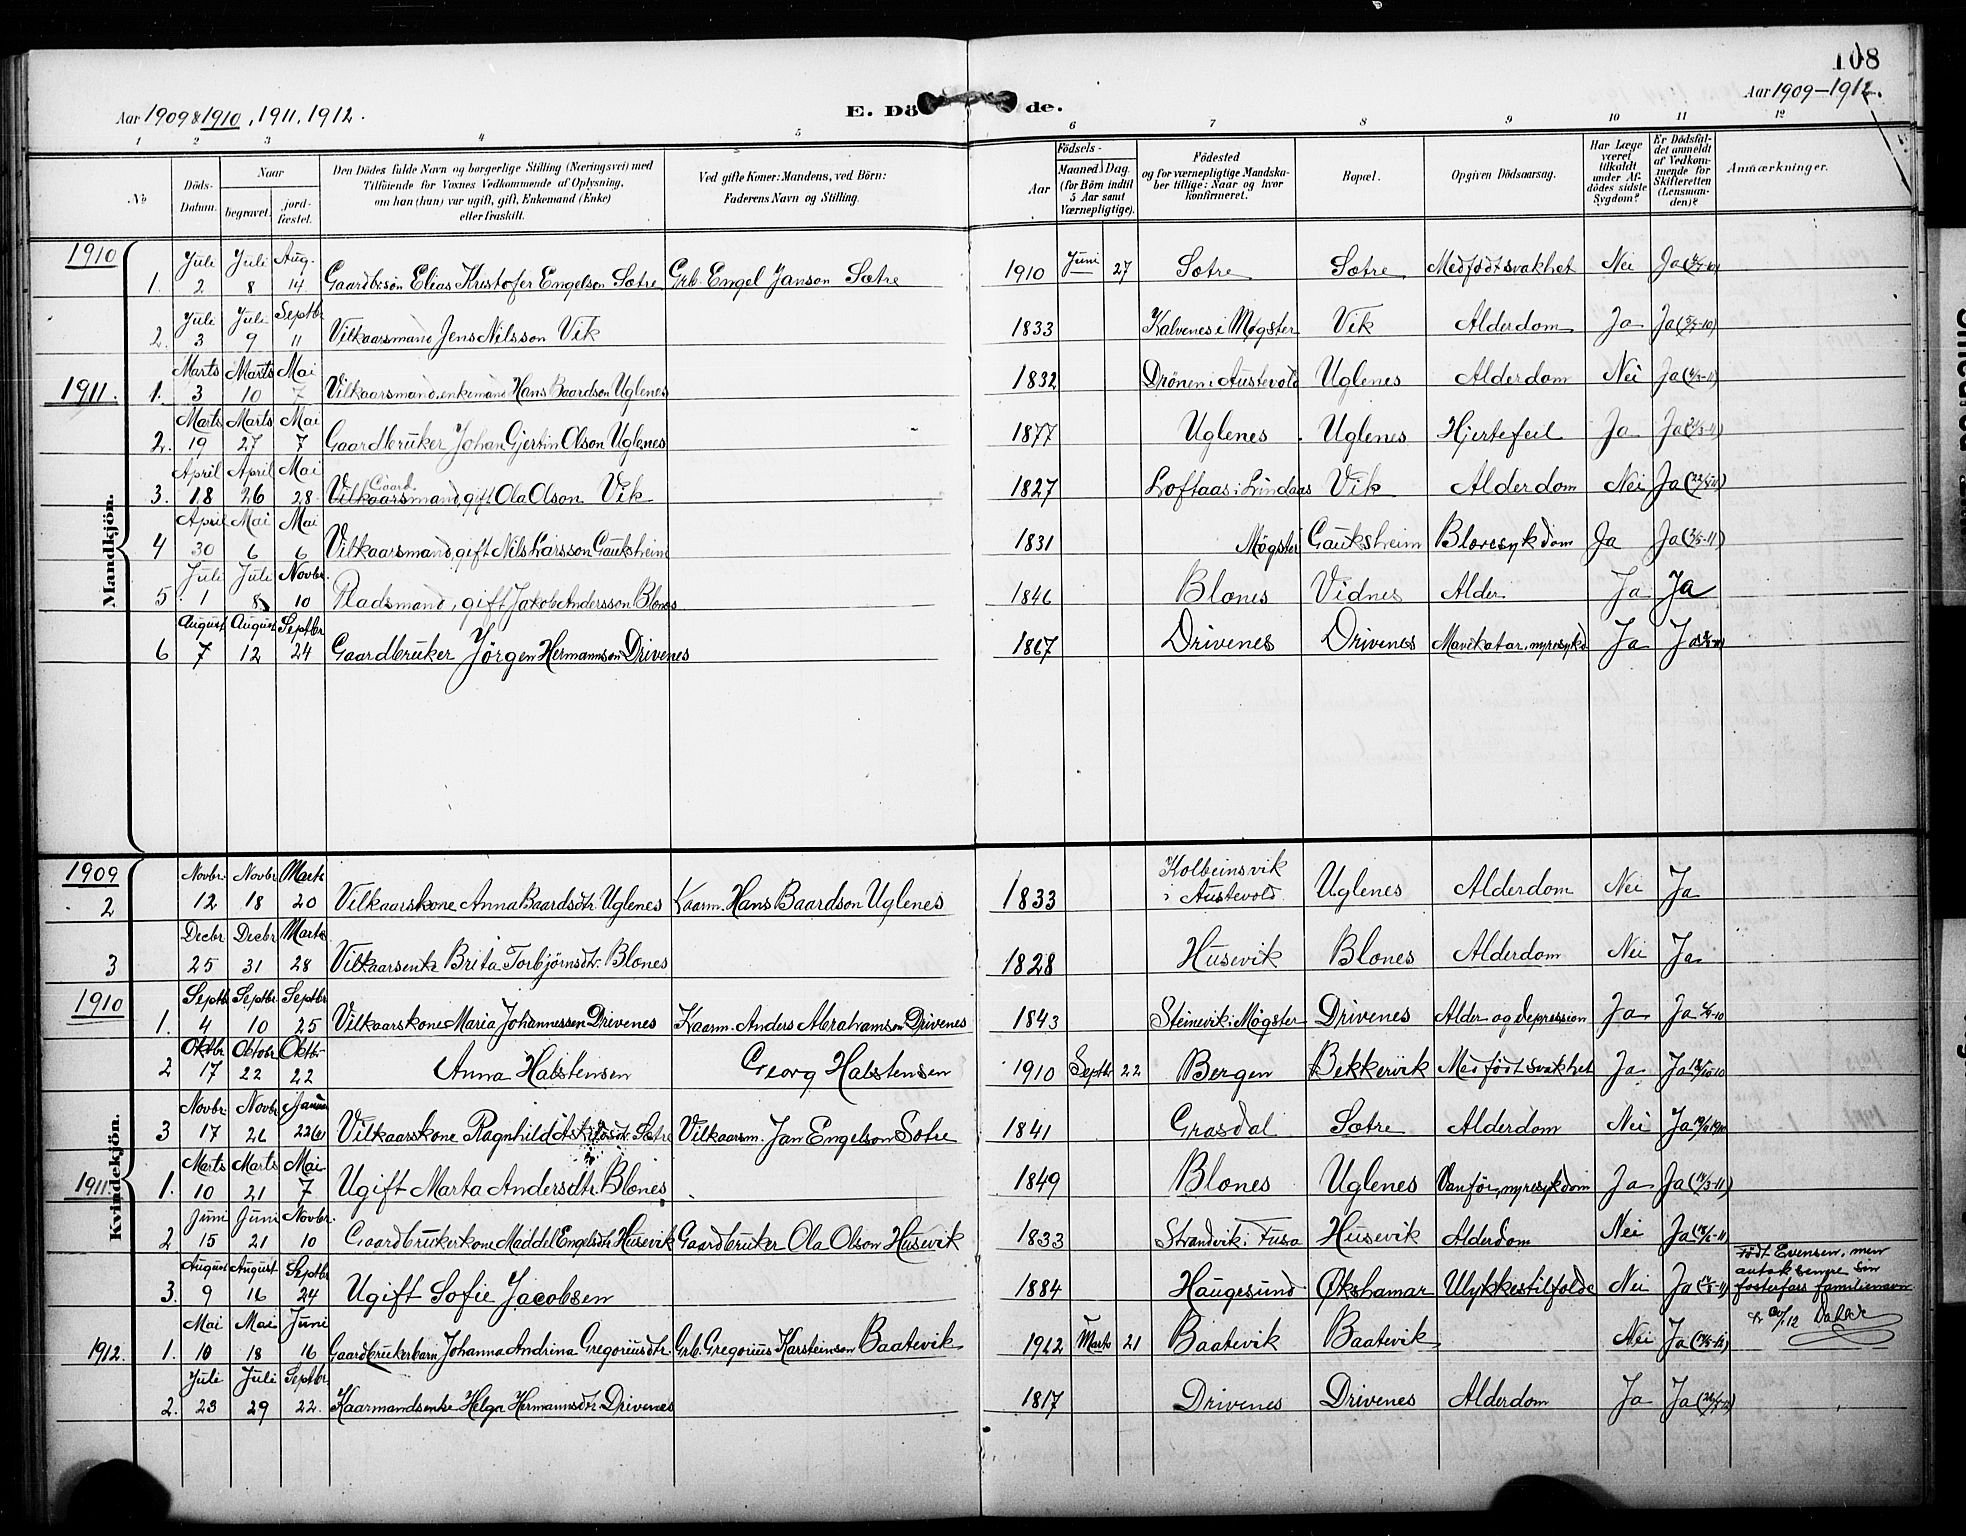 108
Aar 1909 & 1910, 1911, 1912. E. Dö de. Aar 1909–1912.
1 2 3 4 5 6 7 8 9 10 11 12
No
Döds-Datum.
Naar
begravet.
jord-fæstet.
Den Dödes fulde Navn og borgerlige Stilling (Næringsvei) med
Tilföiende for Voxnes Vedkommende af Oplysning,
om han (hun) var ugift, gift, Enkemand (Enke)
eller fraskilt.
Ved gifte Koner: Mandens, ved Börn:
Faderens Navn og Stilling.
Födsels-
Aar
Maaned. Dag.
(for Börn indtil
5 Aar samt
Værnepligtige).
Födested
og for værnepligtige Mandska-
ber tillige: Naar og hvor
konfirmeret.
Bopæl.
Opgiven Dödsaarsag.
Har Læge
været
tilkaldt
under Af-
dödes sidste
Sygdom?
Er Dödsfal-
det anmeldt
af Vedkom-
mende for
Skifteretten
(Lensman-
den)?
Anmærkninger.
Mandkjön.
1910
1. Juli 2 Juli 8 Aug. 14 Gaardbr.sön Elias Kristofer Engelson Sætre Grb. Engel Janson Sætre 1910 Juni 27 Sætre Sætre Medfödt svakhet Nei Ja
2. Juli 3 Juli 9 Septbr 11 Vilkaarsmand Jens Nilsson Vik 1833 Kalvenes i Møgster Vik Alderdom Ja Ja (5/7-10)
1911. 1. Marts 3 Marts 10 Mai 7 Vilkaarsmand, enkemand Hans Baardson Uglenes 1832 Drönen i Austevold Uglenes Alderdom Nei Ja
2. Marts 19 Marts 27 Mai 7 Gaardbruker Johan Gjertin Olson Uglenes 1877 Uglenes Uglenes Hjertefeil Ja Ja
3. April 18 April 26 Mai 28 Vilkaarsmand, gift Ola Olson Vik 1827 Loftaas i Lindaas Vik Alderdom Nei Ja
Gaard
4 April 30 Mai 6 Mai 6 Vilkaarsmand, gift Nils Larsson Gauksheim 1831 Møgster Gauksheim Blæresykdom Ja Ja
5 Juli 1 Juli 8 Novbr. 10 Pladsmand, gift Jakob Andersson Blænes 1846 Blænes Vidnes Alder Ja Ja
6 August 7 August 12 Septbr 24 Gaardbruker Jörgen Hermannson Drivenes 1867 Drivenes Drivenes Mavekatar, nyresykd Ja Ja
Kvindekjön.
1909
2 Novbr. 12 Novbr 18 Marts 20 Vilkaarskone Anna Baardsdtr. Uglenes Kaarm. Hans Baardson Uglenes 1833 Kolbeinsvik i Austevold Uglenes Alderdom Nei Ja
3 Decbr 25 Decbr 31 Marts 28 Vilkaarsenke Brita Torbjørnsdtr. Blænes 1828 Husevik Blænes Alderdom Nei Ja
1910
1. Septbr 4 Septbr 10 Septbr 25 Vilkaarskone Maria Johannessen Drivenes Kaarm. Anders Abrahamson Drivenes 1843 Steinevik i Møgster Drivenes Alder og depression Ja Ja
2 Oktbr 17 Oktobr 22 Oktbr 22 Anna Halstensen Georg Halstensen 1910 Septbr 22 Bergen Bekkervik Medfödt svakhet Ja Ja
3 Novbr. 17 Novbr 26 Januar 22 Vilkaarskone Ragnhild Sætre Vilkaarsm. Jan Engelson Sætre 1841 Grasdal Sætre Alderdom Nei Ja
1911. 1. Marts 10 Marts 21 Mai 7 Ugift Marta Andersdtr. Blænes 1849 Blænes Uglenes Vanför, nyresykdom Ja Ja
2 Juni 15 Juni 21 Novbr. 10 Gaardbrukerkone Maddel Engelsdtr Husevik Gaardbruker Ola Olson Husevik 1833 Strandvik i Fusa Husevik Alderdom Nei Ja
3. August 9 August 16 Septbr 24 Ugift Sofie Jacobsen 1884 Haugesund Økshamar Ulykkestilfælde Nei Ja
Født Evensen, men
antok senere sin
fosterfars familienavn
1912. 1. Mai 10 Mai 18 Juni 16 Gaardbrukerbarn Johanna Andrina Gregoriusdtr. Grb. Gregorius Karsteinson Baatevik 1912 Marts 21 Baatevik Baatevik Nei Ja
2. Juli 23 Juli 29 Septbr. 22. Kaarmandsenke Helga Hermannsdtr Drivenes 1817 Drivenes Drivenes Alderdom Ja Ja